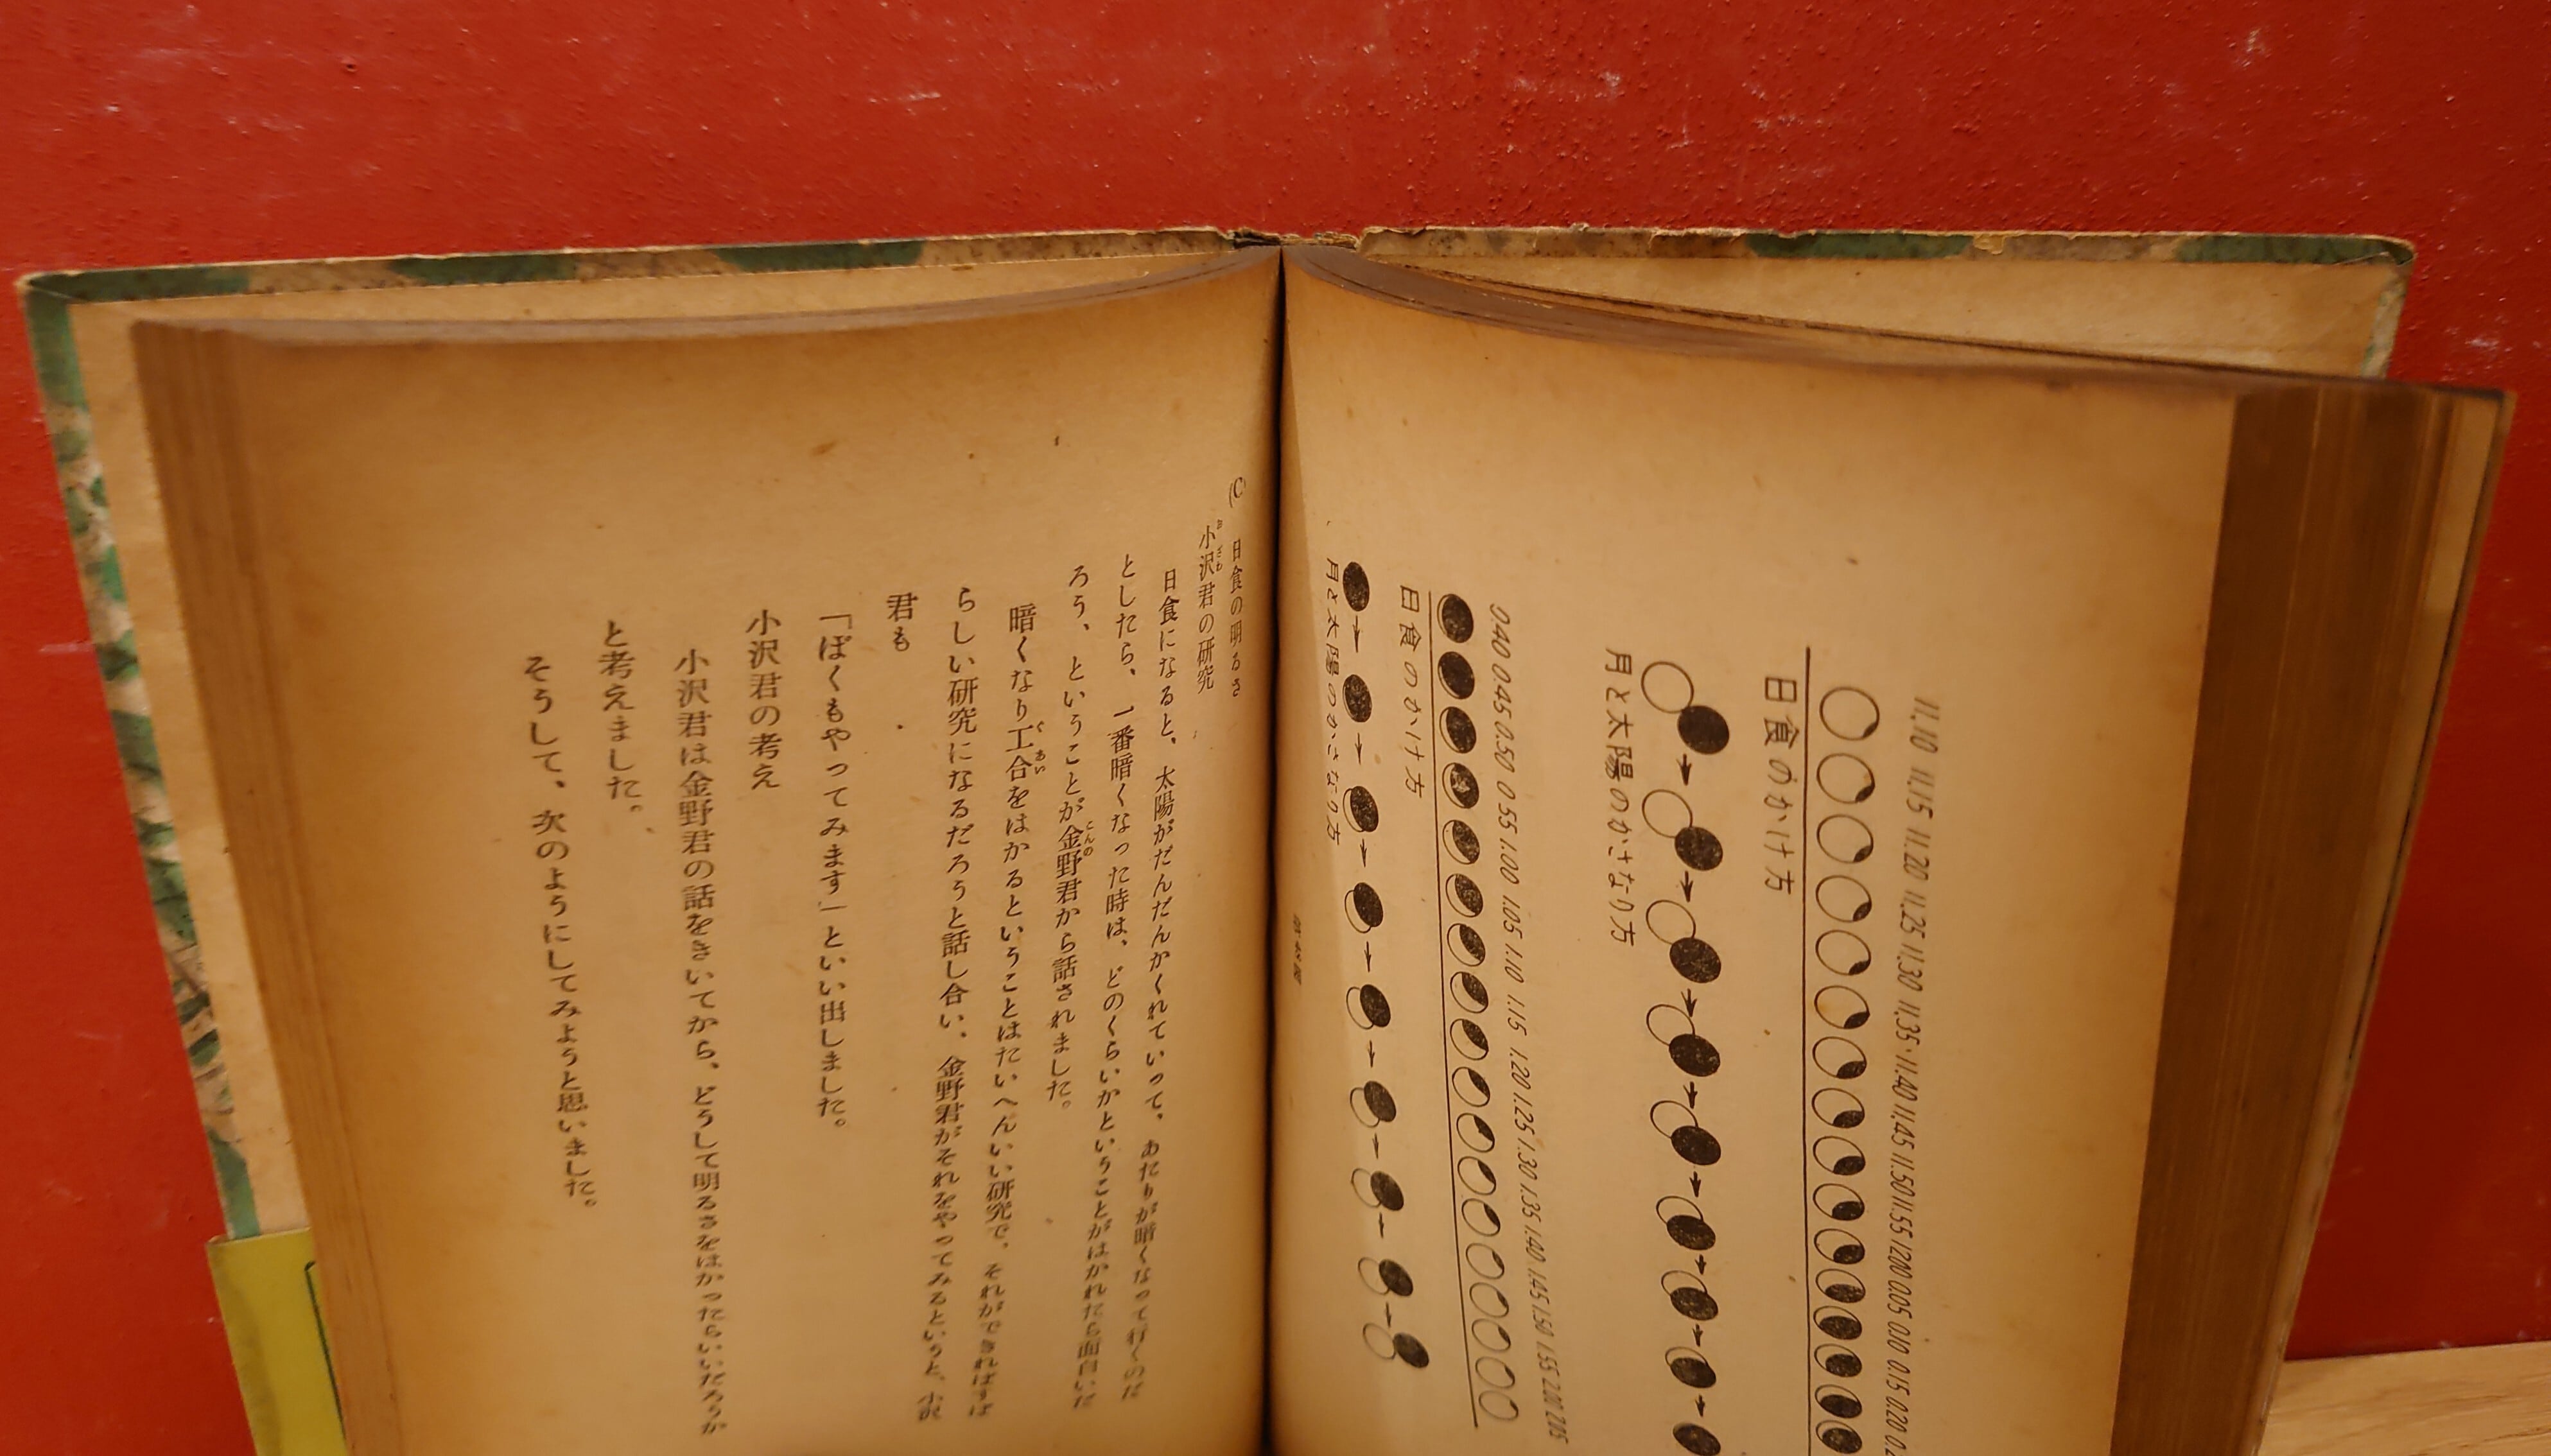 11.10 11.15 11.20 11.25 11.30 11.35 11.40 11.45 11.50 11.55 12.00 0.05 0.10 0.15 0.20
日食のかけ方
月と太陽のかさなり方
0.40 0.45 0.50 0.55 1.00 1.05 1.10 1.15 1.20 1.25 1.30 1.35 1.40 1.45 1.50 1.55 2.00 2.05
日食のかけ方
月と太陽のかさなり方
(C) 日食の明るさ
小沢君の研究
日食になると、太陽がだんだんかくれていって、あたりが暗くなって行くのだ
としたら、一番暗くなった時は、どのくらいかということがはかれたら面白いだ
ろう、ということが金野君から話されました。
暗くなり工合をはかるということはたいへんいい研究で、それができればすば
らしい研究になるだろうと話し合い、金野君がそれをやってみるというと、小沢
君も
「ぼくもやってみます」といい出しました。
小沢君の考え
小沢君は金野君の話をきいてから、どうして明るさをはかったらいいだろうか
と考えました。
そうして、次のようにしてみようと思いました。